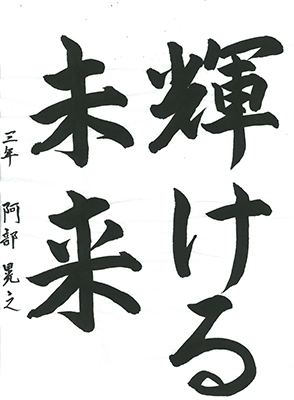 輝ける
未来
三年 阿部晃之